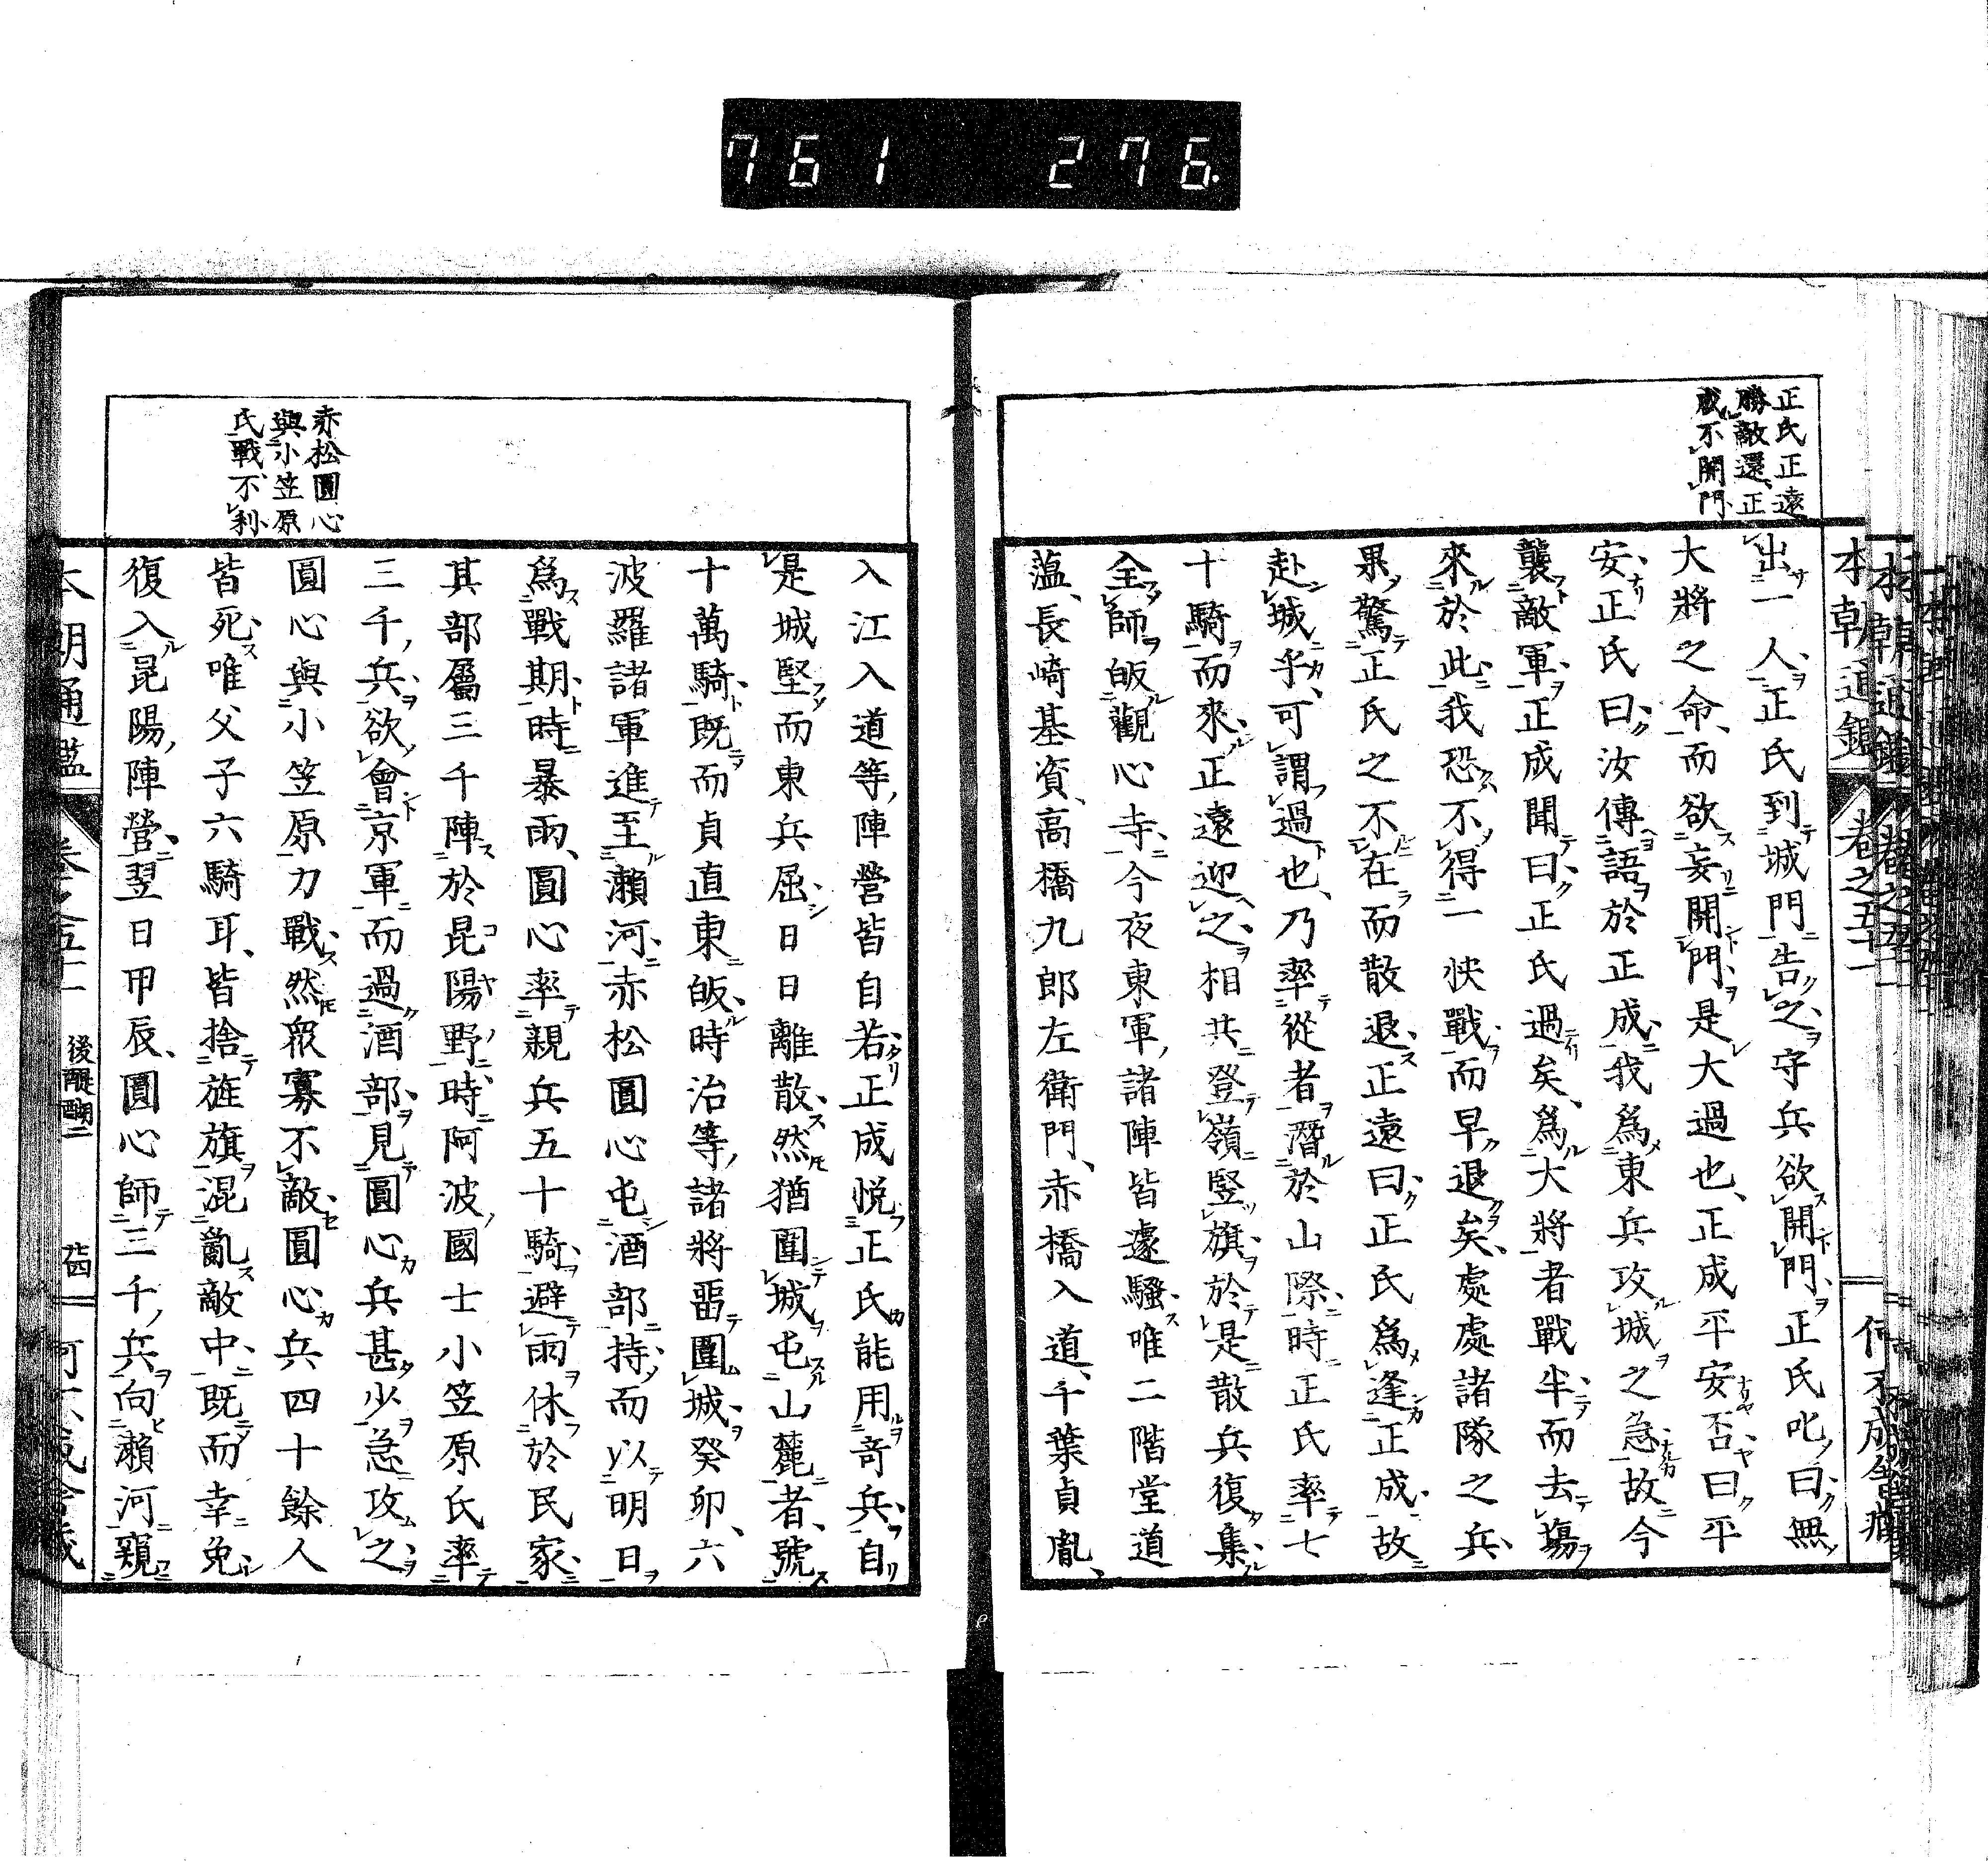 761 276
正氏正遠
勝敵還正
成不開門
本朝通鑑 卷之五十一
出一人正氏到城門告之守兵欲開門正氏叱曰無
大將之命而欲妄開門是大過也正成平安否曰平
安正氏曰汝傳語於正成我爲東兵攻城之急故今
襲敵軍正成聞曰正氏過矣爲大將者戰半而去場
來於此我恐不得一快戰而早退矣處處諸隊之兵
果驚正氏之不在而散退正遠曰正氏爲逢正成故
赴城乎可謂過也乃率從者潛於山際時正氏率七
十騎而來正遠迎之相共登嶺竪旗於是散兵復集
全師皈觀心寺今夜東軍諸陣皆遽騷唯二階堂道
薀長崎基資高橋九郎左衛門赤橋入道千葉貞胤
赤松圓心
與小笠原
氏戰不利
入江入道等陣營皆自若正成悅正氏能用奇兵自
是城堅而東兵屈日日離散然猶圍城屯山麓者號
十萬騎既而貞直東皈時治等諸將畱圍城癸卯六
波羅諸軍進至瀨河赤松圓心屯酒部持而以明日
爲戰期時暴雨圓心率親兵五十騎避雨休於民家
其部屬三千陣於昆陽野時阿波國士小笠原氏率
三千兵欲會京軍而過酒部見圓心兵甚少急攻之
圓心與小笠原力戰然衆寡不敵圓心兵四十餘人
皆死唯父子六騎耳皆捨旌旗混亂敵中既而幸免
復入昆陽陣營翌日甲辰圓心師三千兵向瀨河窺
本朝通鑑 卷之五十一 後醍醐二